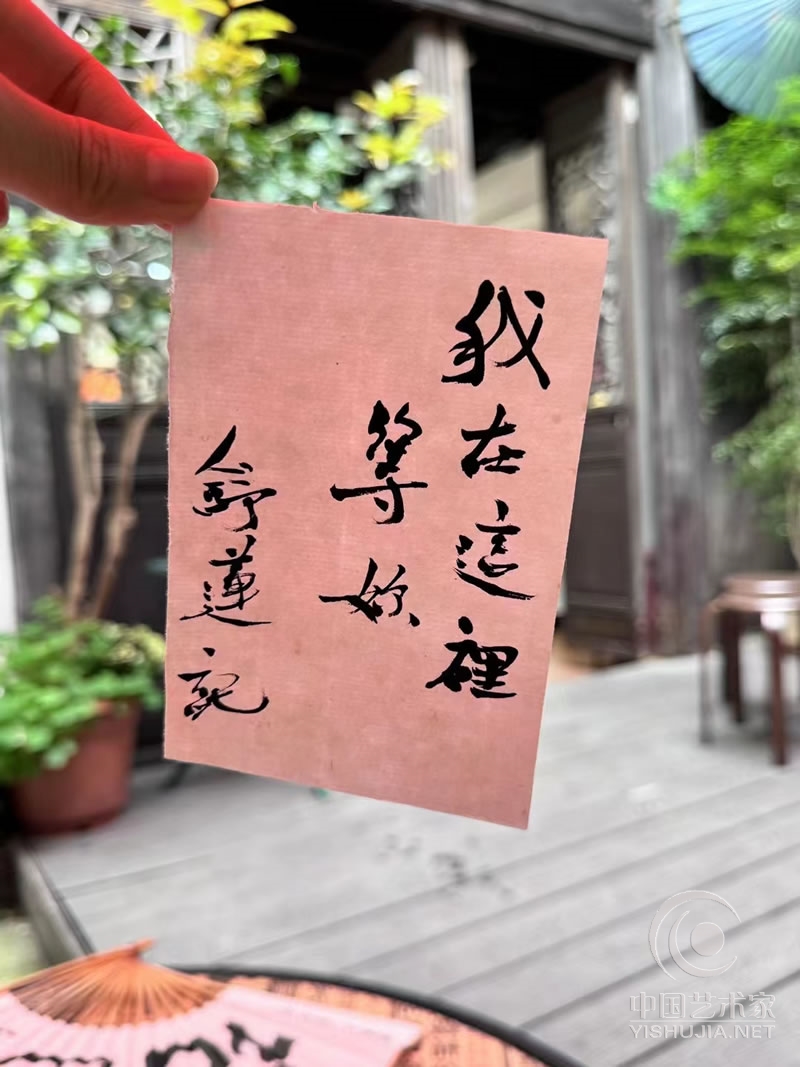 我在這裡
等妳
舒蓮記
中国艺术家
YISHUJIA.NET